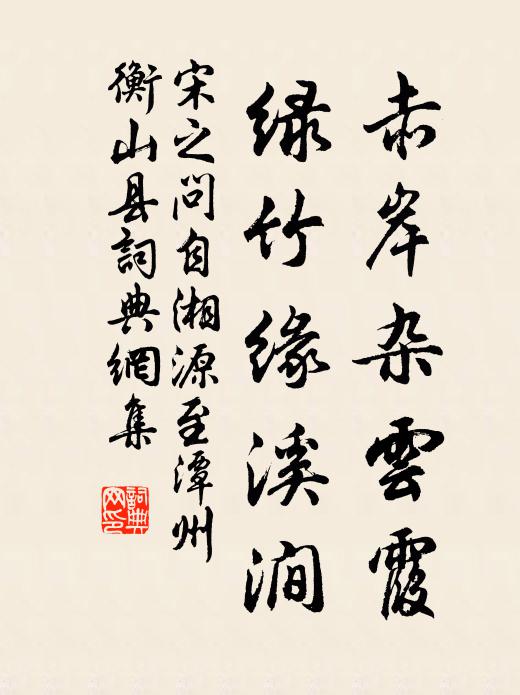 赤岸杂雲霞
绿竹缘溪澗
宋之问自湘源至潭州
衡山县詞典網集
詞典网印